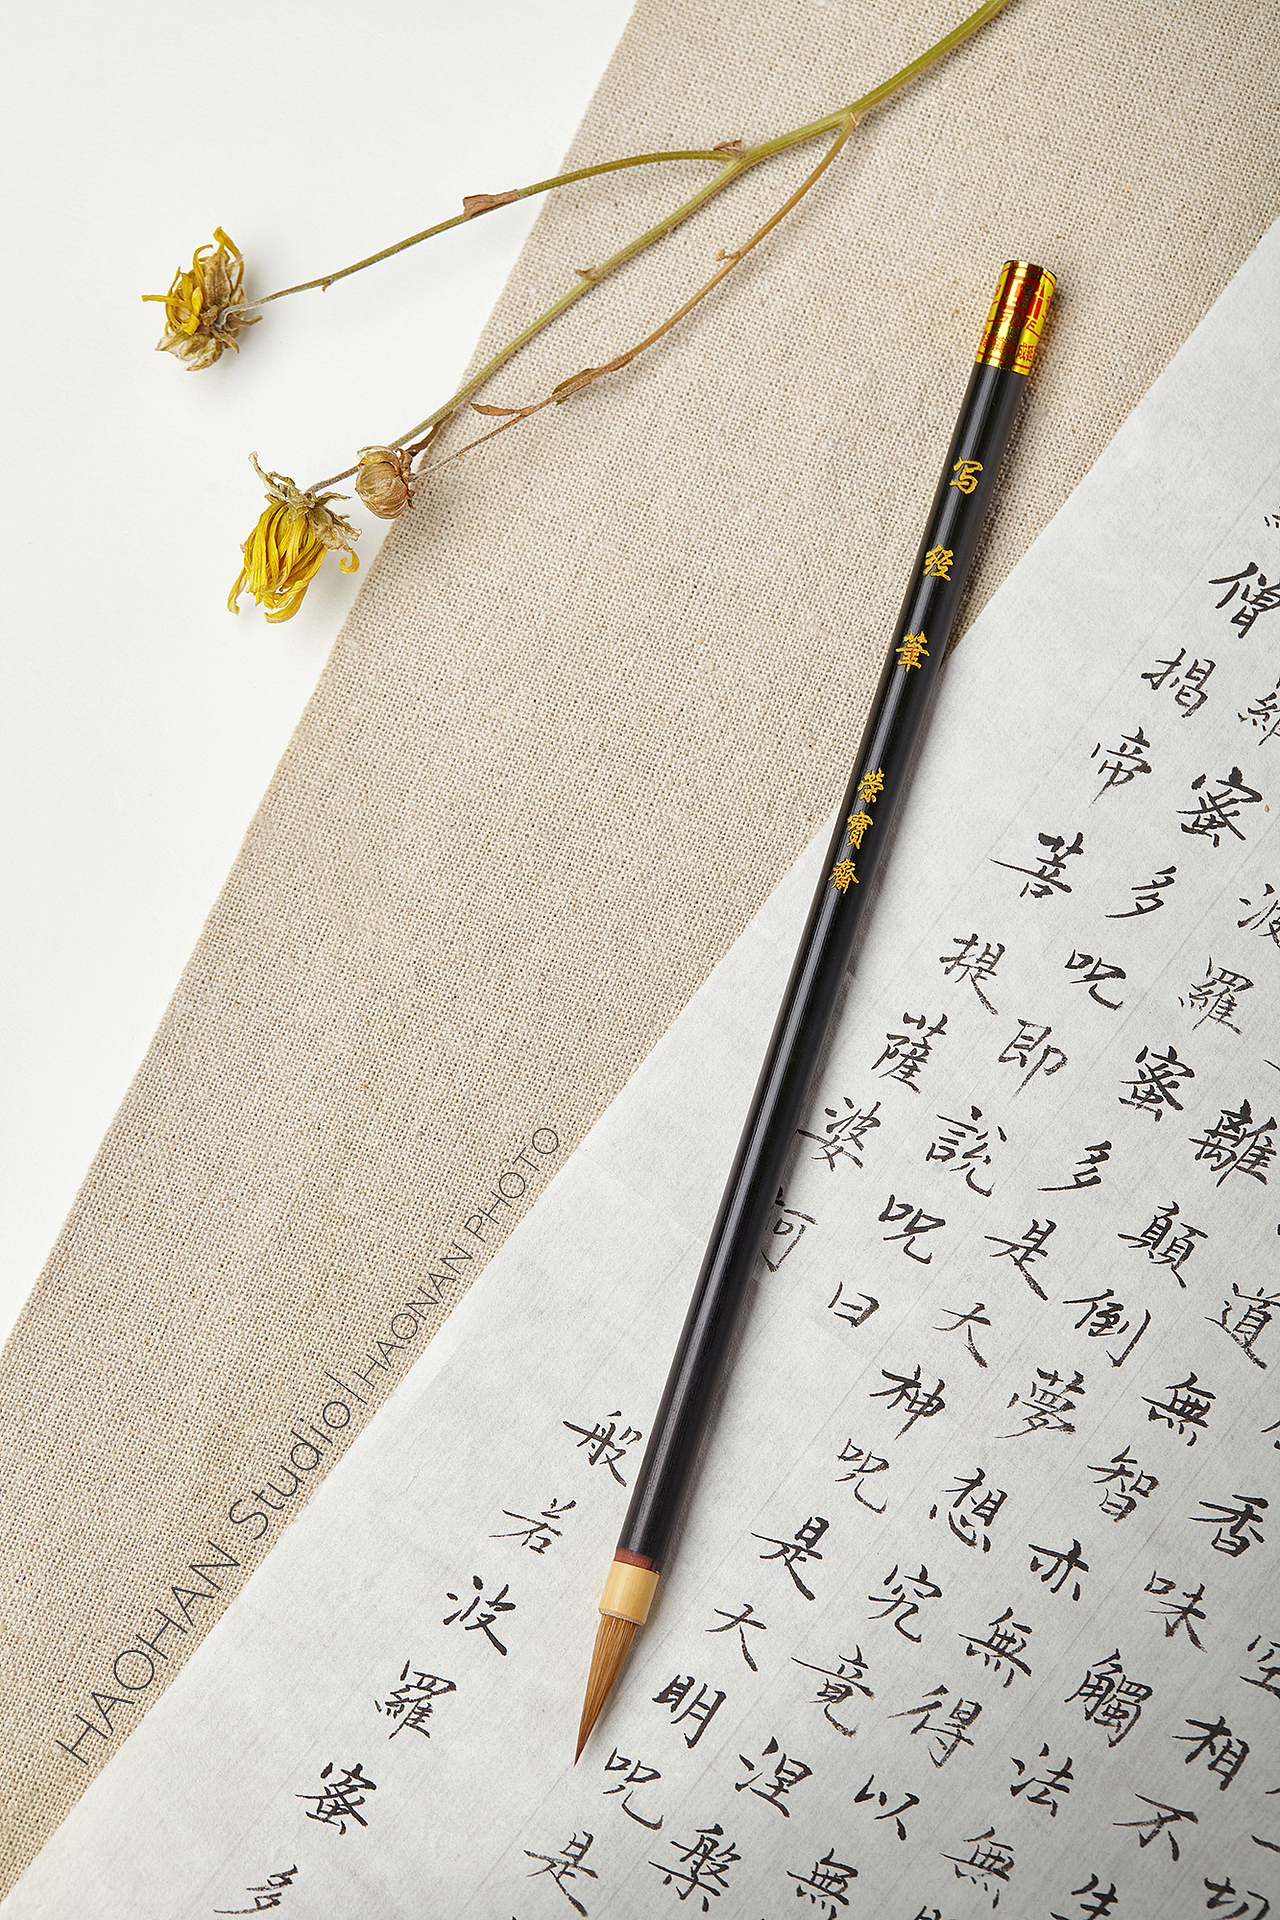 写経筆
榮寶齋
空相不生
切
香味觸法無
道無智亦無得以無
離顛倒夢想究竟涅槃
波羅蜜多是大神呪是大明呪是
蜜多呪即說呪曰
僧揭帝菩提薩婆訶
般若波羅蜜多
HAOHAN Studio|HAONAN PHOTO